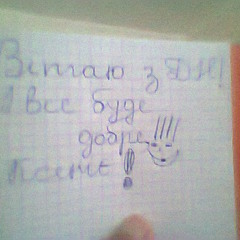 Вітаю з ДН!
І все буде
добре!!!!